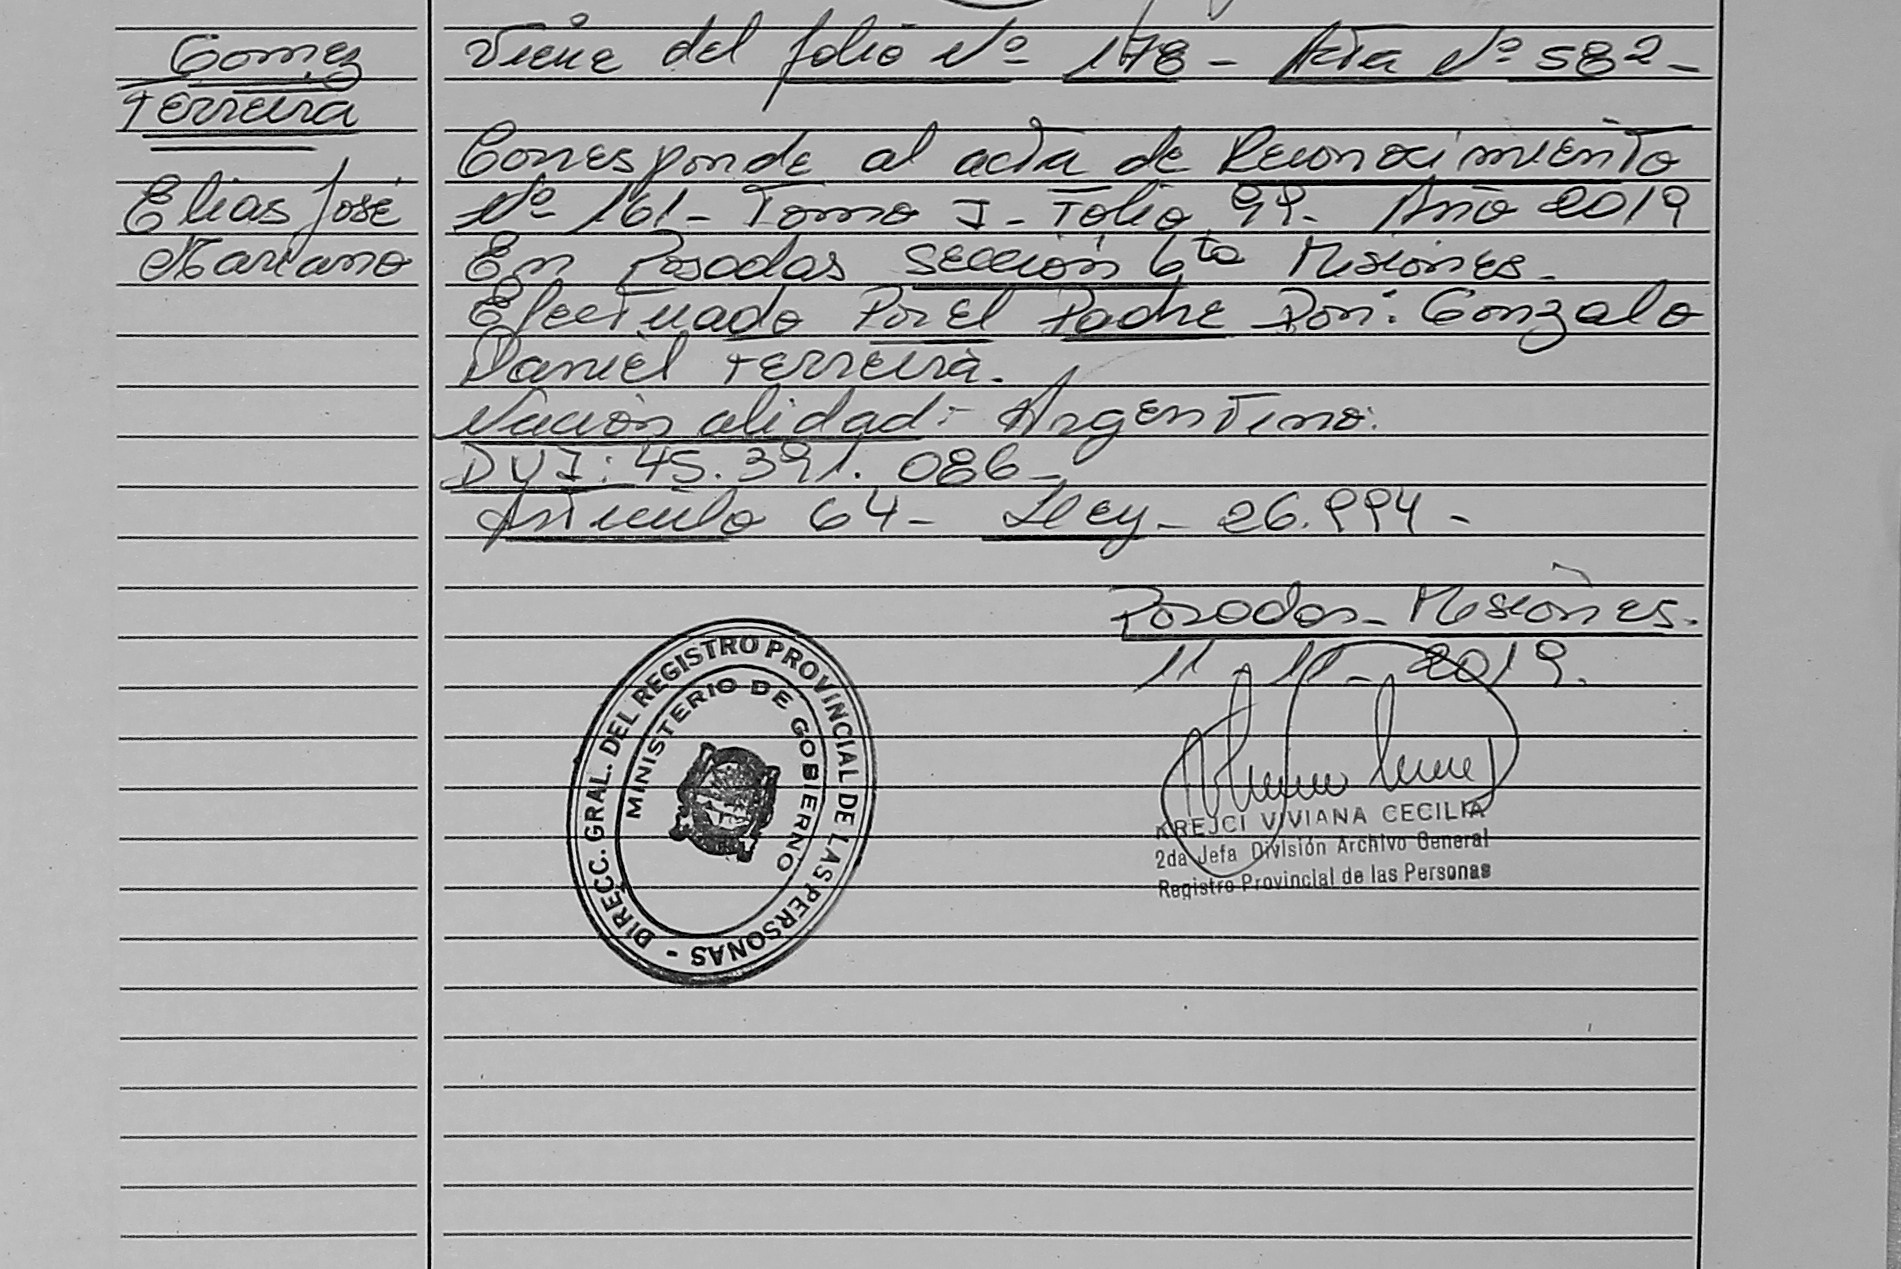 Gomez
Ferreira
Elias José
Mariano
Viene del folio Nº 178 - Acta Nº 582 -
Corresponde al acta de Reconocimiento
Nº 161 - Tomo I - Folio 99. Año 2019
En Posadas Sección 6ta Misiones.
Efectuado Por el Padre Don: Gonzalo
Daniel Ferreira.
Nacionalidad: Argentino.
DNI: 45.391.086 -
Articulo 64 - Ley - 26.994 -
Posadas - Misiones.
11 - 11 - 2019.
DIRECC. GRAL. DEL REGISTRO PROVINCIAL DE LAS PERSONAS -
MINISTERIO DE GOBIERNO
KREJCI VIVIANA CECILIA
2da Jefa División Archivo General
Registro Provincial de las Personas